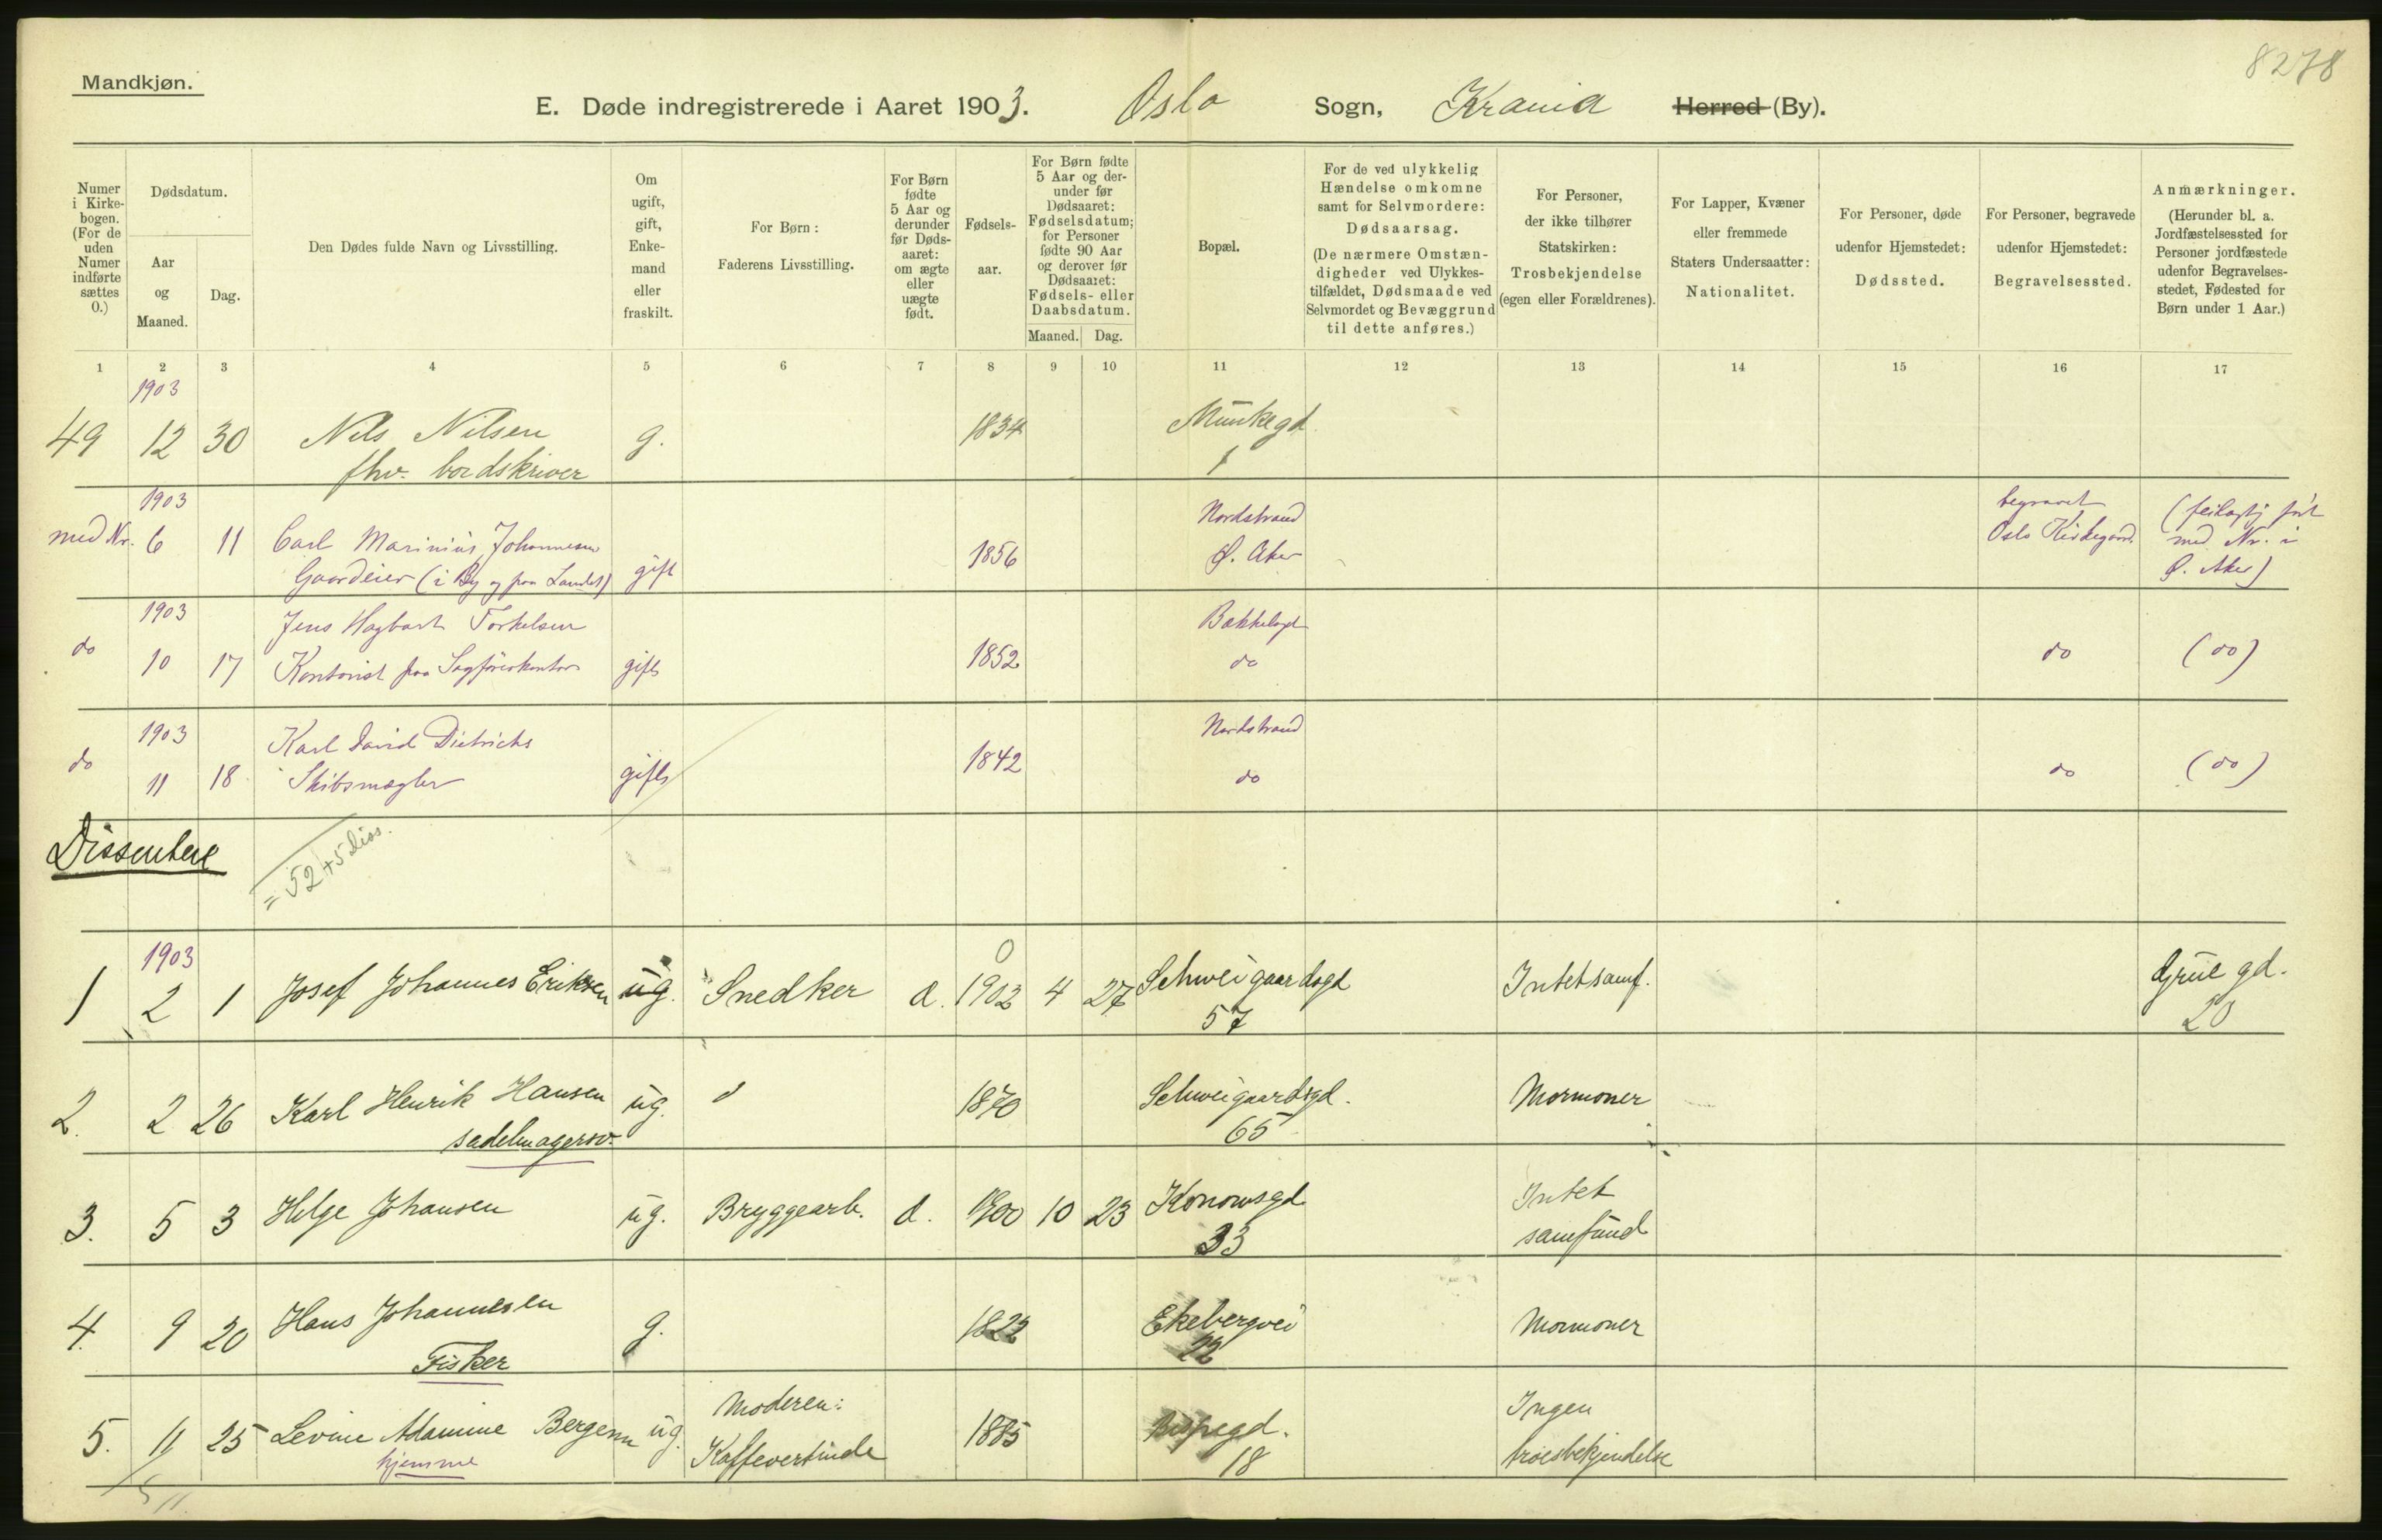 8278
Mandkjøn.
E. Døde indregistrerede i Aaret 1903. Oslo Sogn, Krania Herred (By).
Numer i Kirkebogen. (For de uden Numer indførte sættes 0.)
Dødsdatum.
Aar og Maaned.
Dag.
Den Dødes fulde Navn og Livsstilling.
Om ugift, gift, Enkemand eller fraskilt.
For Børn: Faderens Livsstilling.
For Børn fødte 5 Aar og derunder før Dødsaaret: om ægte eller uægte født.
Fødselsaar.
For Børn fødte 5 Aar og derunder før Dødsaaret: Fødselsdatum; for Personer fødte 90 Aar og derover før Dødsaaret: Fødsels- eller Daabsdatum.
Maaned. Dag.
Bopæl.
For de ved ulykkelig Hændelse omkomne samt for Selvmordere: Dødsaarsag. (De nærmere Omstændigheder ved Ulykkestilfældet, Dødsmaade ved Selvmordet og Bevæggrund til dette anføres.)
For Personer, der ikke tilhører Statskirken: Trosbekjendelse (egen eller Forældrenes).
For Lapper, Kvæner eller fremmede Staters Undersaatter: Nationalitet.
For Personer, døde udenfor Hjemstedet: Dødssted.
For Personer, begravede udenfor Hjemstedet: Begravelsessted.
Anmærkninger. (Herunder bl. a. Jordfæstelsessted for Personer jordfæstede udenfor Begravelsesstedet, Fødested for Børn under 1 Aar.)
1 2 3 4 5 6 7 8 9 10 11 12 13 14 15 16 17
1903
49 12 30 Nils Nilsen g. 1834 Munkegd
fhv. bordskriver 1
1903 Nordstrand begravet (feilagtig ført
med Nr. 6 11 Carl Marinius Johannesen 1856 Ø. Aker Oslo Kirkegaard. med Nr. i
Gaardeier (i By og paa Landet) gift Ø. Aker)
1903 Jens Hagbart Torkelsen Bækkelagd
do 10 17 Kontorist paa Sagførerkontor gift 1852 do do (do)
1903 Karl David Dietrichs Nordstrand
do 11 18 Skibsmægler gift 1842 do do (do)
Dissentere
= 52 + 5 Diss.
1903 0
1 2 1 Josef Johannes Eriksen ug. Snedker d. 1902 4 27 Schweigaardsgd Intetsamf. Grüe gd.
57 20
2. 2 26 Karl Henrik Hansen ug. 1870 Schweigaardsgd. Mormoner
sadelmagersv. 65
3. 5 3 Helge Johansen ug. Bryggearb. d. 1900 10 23 Konowsgd Intet
33 samfund
4. 9 20 Hans Johannesen g. 1822 Ekebergvei Mormoner
Fisker 22
5. 11 25 Levine Adamine Bergersen ug. Moderen: 1885 Bispegd. Ingen
hjemme Kaffevertinde 18 troesbekjendelse